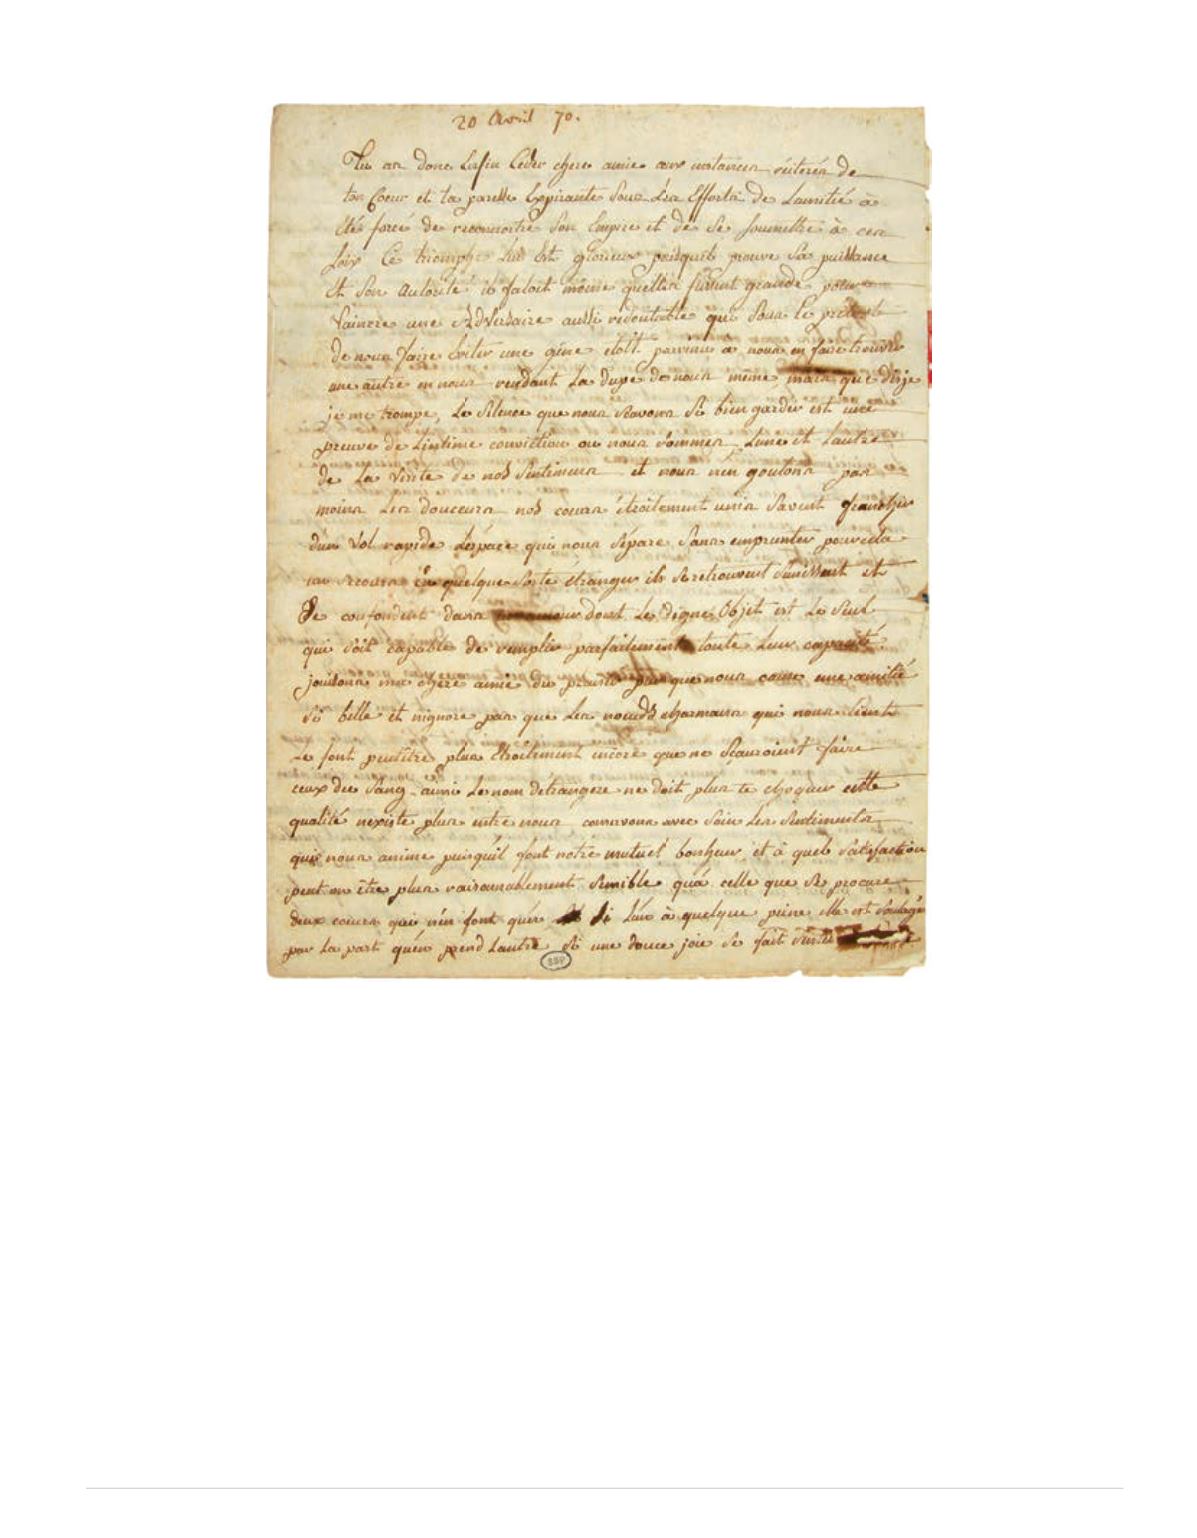 20 Avril 70.
Tu as donc Enfin Ceder chere amie aux instances réiterés de
ton Coeur et ta paresse Expirante Sous Les Efforts de Lamitié à
étés forcé de reconnoitre Son Empire et de Se Soumettre à ces
Loix Ce triomphe lui Est glorieux puisquil prouve Sa puissance
Et Son autorité il faloit même quelles fussent grande pour
Vaincre une Adversaire aussi redoutable qui Sous Le pretexte
de nous faire Eviter une gêne etoit parvenu à nous en faire trouver
une autre en nous rendant La dupe de nous même, mais que disje
je me trompe, Le Silence que nous Savons Si bien garder est une
preuve de Lintime conviction ou nous sommes Lune et Lautre
de La Verité de nos Sentimens et nous n'en goutons pas
moins Les douceurs nos coeurs étroitement unis Savent franchir
d'un Vol rapide Lespace qui nous Sépare Sans emprunter pour cela
un secours en quelque Sorte étranger ils Se retrouvent Sunissent et
Se confondent dans dont Le digne Objet est Le Seul
qui Soit capable de remplir parfaitement toute Leur capacité.
jouissons ma chere amie du plaisir que nous cause une amitié
Si belle et nignore pas que Les noeuds charmans qui nous Lient
Le font peutêtre plus étroitement encore que ne Sçauroient faire
ceux du Sang ainsi Le nom détrangere ne doit plus te choquer cette
qualité nexiste plus entre nous conservons avec Soin Les Sentiments
qui nous anime puisquil font notre mutuel bonheur et à quel Satisfaction
peut on être plus raisonnablement Sensible quà celle que Se procure
deux coeurs qui n'en font qu'un Si Lun à quelque peine elle est Soulagé
par La part qu'en prend Lautre Si une douce joie Se fait Sentir